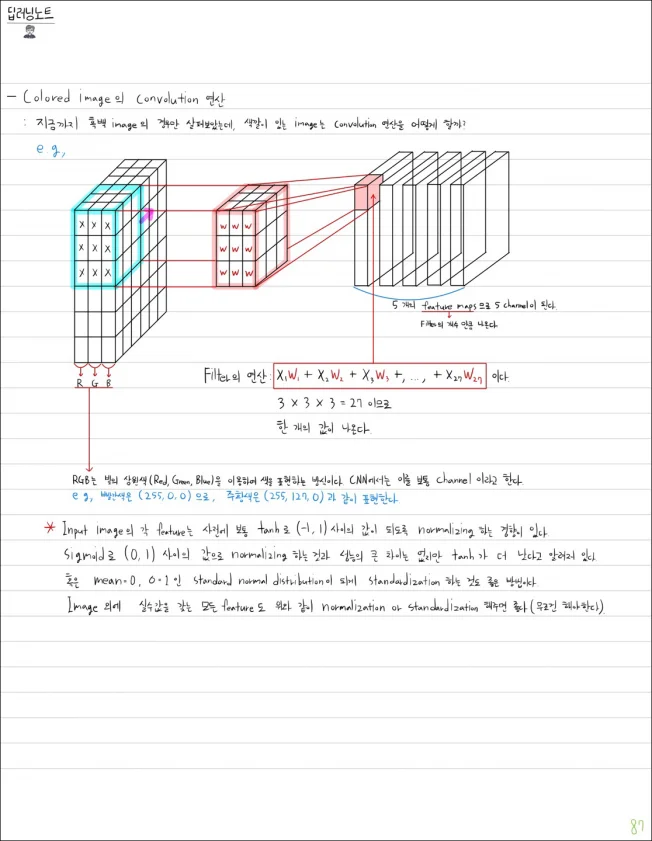 딥러닝노트
- Colored image의 Convolution 연산
: 지금까지 흑백 image의 경우만 살펴보았는데, 색깔이 있는 image는 Convolution 연산을 어떻게 할까?
e g,
X X X W W W
X X X W W W
X X X W W W
5 개의 feature maps으로 5 channel이 된다.
Filter의 개수 만큼 나온다.
R G B
Filter의 연산 : X₁W₁ + X₂W₂ + X₃W₃ +, ..., + X₂₇W₂₇ 이다.
3 x 3 x 3 = 27 이므로
한 개의 값이 나온다.
RGB는 빛의 삼원색(Red, Green, Blue)을 이용하여 색을 표현하는 방식이다. CNN에서는 이를 보통 channel 이라고 한다.
e g, 빨간색은 (255,0,0) 으로, 주황색은 (255,127,0) 과 같이 표현한다.
* Input image의 각 feature는 사전에 보통 tanh로 (-1, 1) 사이의 값이 되도록 normalizing 하는 경향이 있다.
Sigmoid로 (0, 1) 사이의 값으로 normalizing 하는 것과 성능의 큰 차이는 없지만 tanh가 더 낫다고 알려져 있다.
혹은 mean=0, σ=1 인 standard normal distribution이 되게 standardization 하는 것도 좋은 방법이다.
Image 외에 실수값을 갖는 모든 feature도 위와 같이 normalization or standardization 해주면 좋다 (무조건 해야한다.)
87